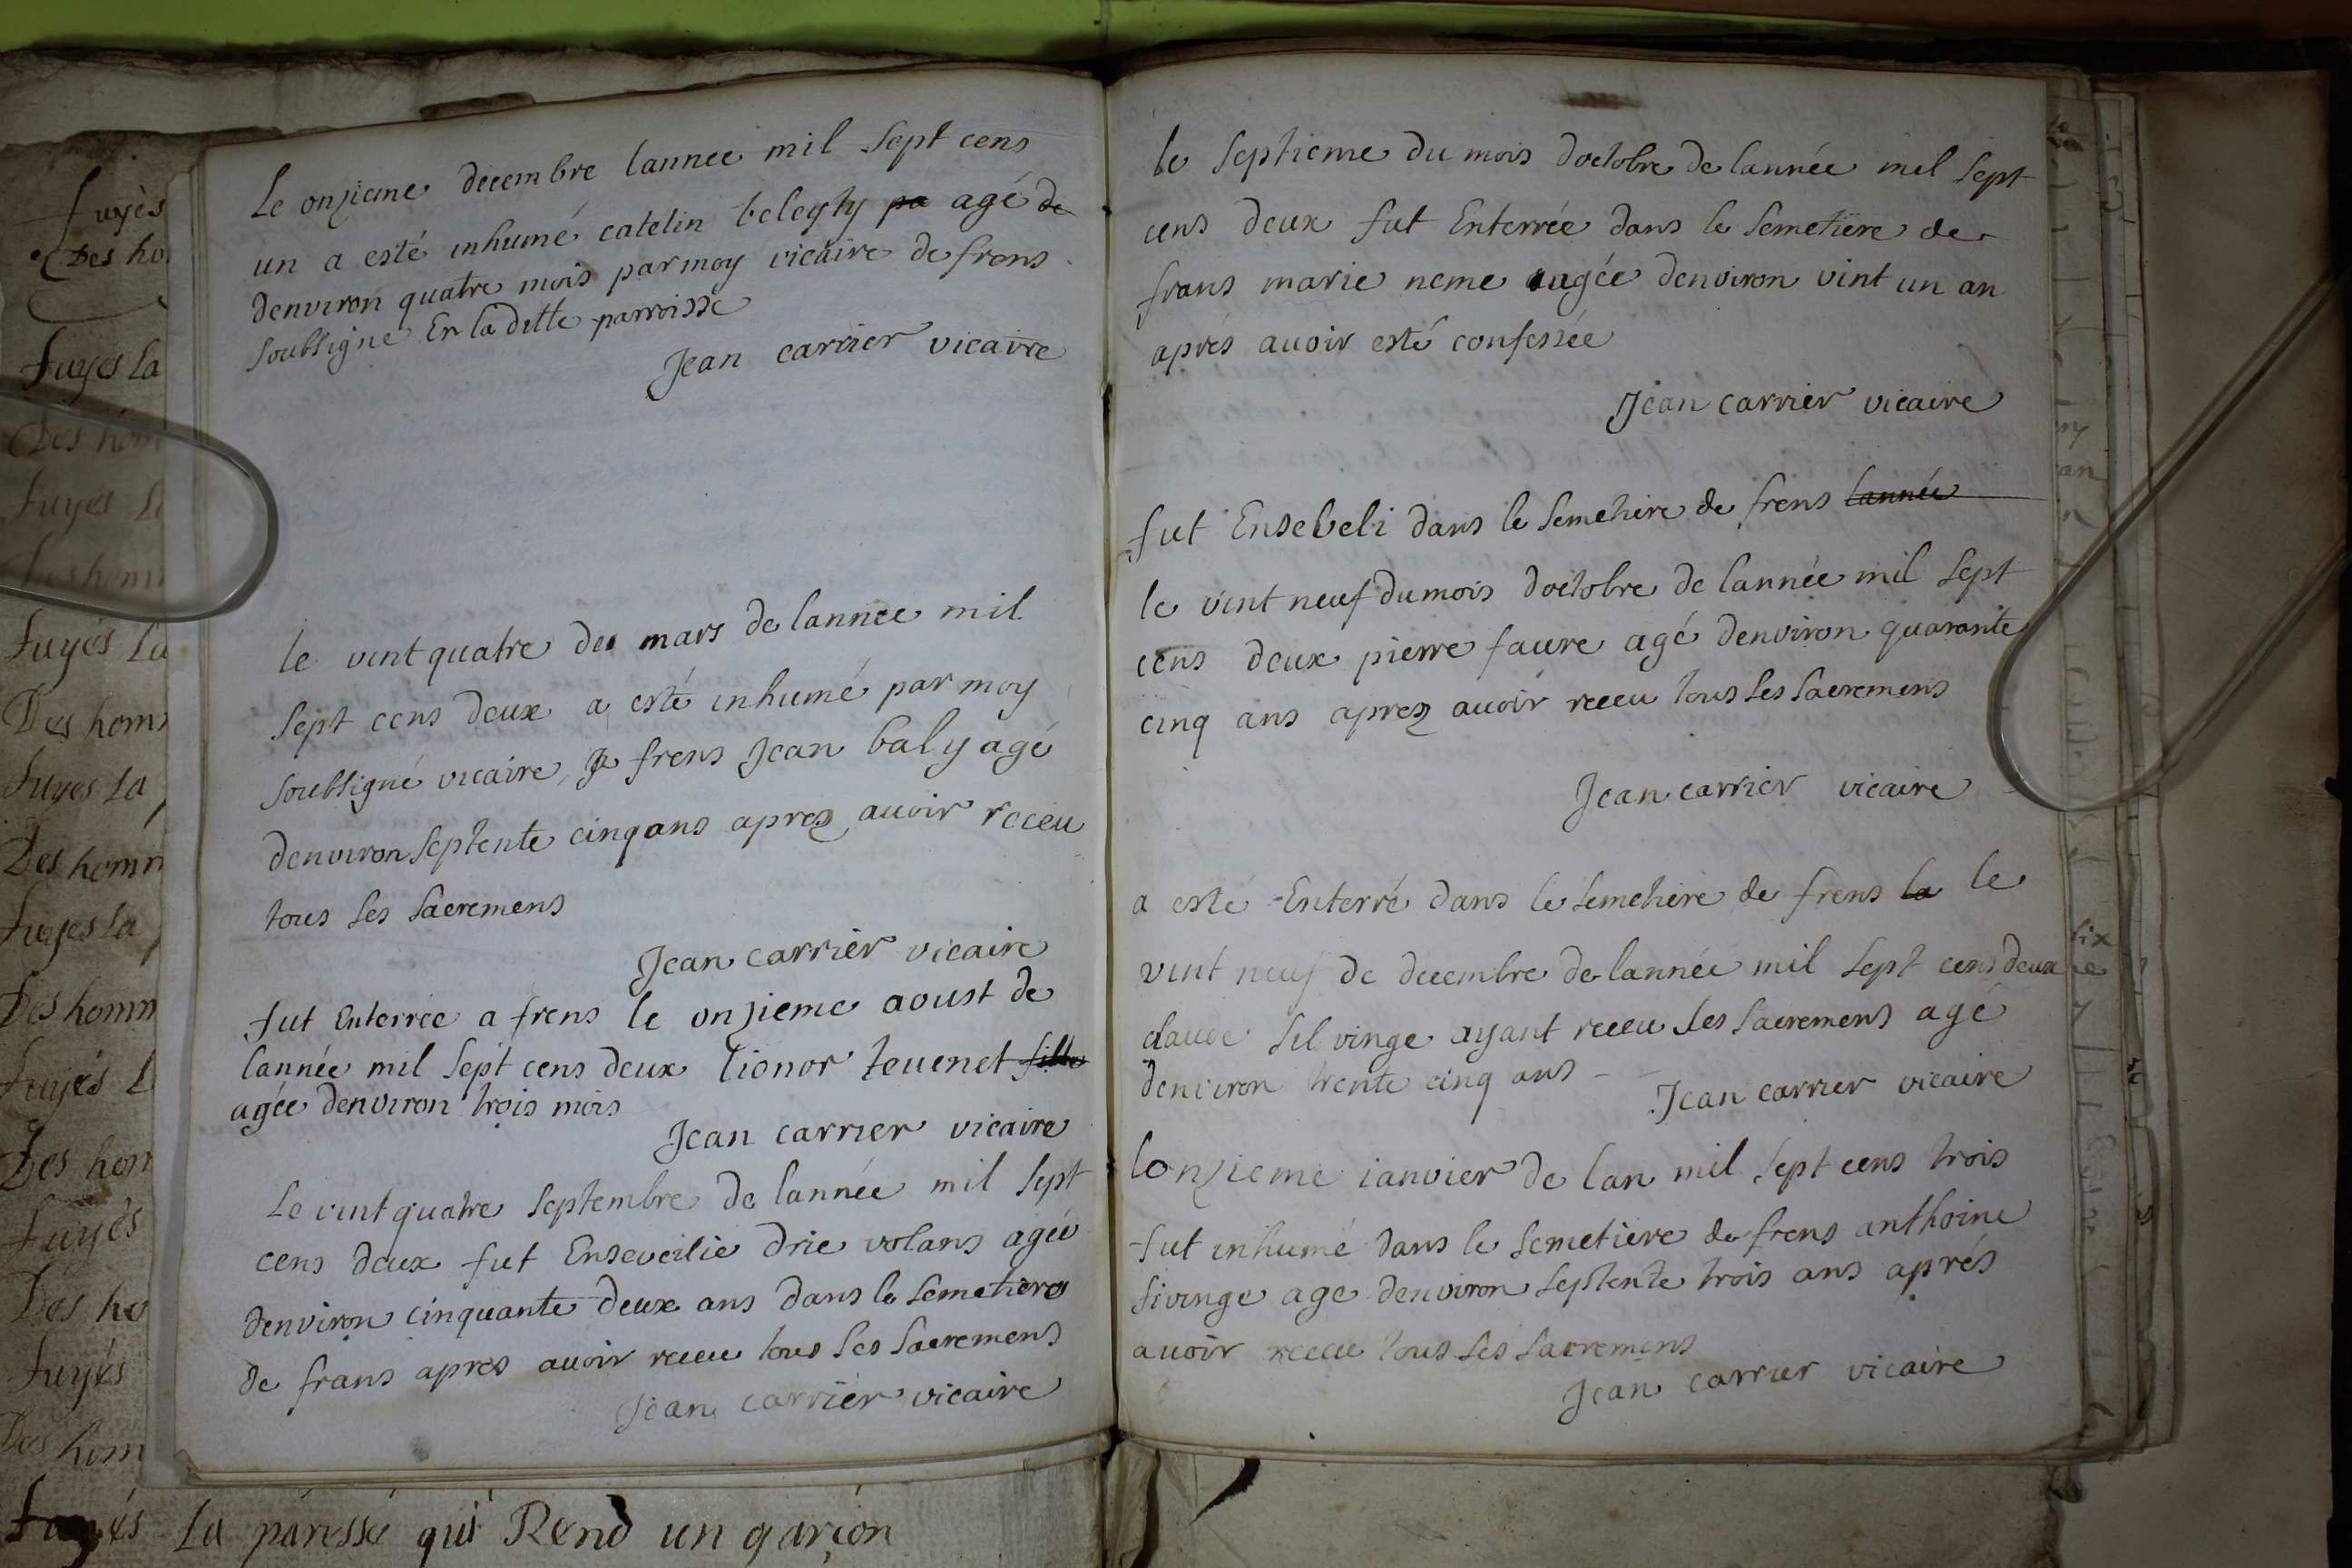 Le onzieme decembre lannee mil sept cens
un a esté inhumé catelin beleyty pa agé de
denviron quatre mois par moy vicaire de frens
soubsigne En la ditte parroisse
Jean carrier vicaire
le vint quatre de mars de lannee mil
sept cens deux a esté inhumé par moy
soubsigné vicaire a frens Jean baly agé
denviron septente cinq ans aprez avoir receu
tous ses sacremens
Jean carrier vicaire
fut Enterrée a frens le onzieme aoust de
lannée mil sept cens deux lionor tevenet fille
agée denviron trois mois
Jean carrier vicaire
Le vint quatre septembre de lannée mil sept
cens deux fut Enseveilie drie volans agée
denviron cinquante deux ans dans le semetiere
de frans apres avoir receu tous ses sacremens
Jean carrier vicaire
le septieme du mois doctobre de lannée mil sept
cens deux fut Enterrée dans le semetiere de
frans marie neme augée denviron vint un an
aprés avoir esté confessée
Jean carrier vicaire
fut Ensebeli dans le semetiere de frens lannée
le vint neuf du mois doctobre de lannée mil sept
cens deux pierre faure agé denviron quarante
cinq ans aprez avoir receu tous ses sacremens
Jean carrier vicaire
a esté Enterré dans le semetiere de frens la le
vint neuf de decembre de lannée mil sept cens deux
claude silvinge ayant receu ses sacremens agé
denviron trente cinq ans
Jean carrier vicaire
lonzieme ianvier de lan mil sept cens trois
fut inhumé dans le semetiere de frens anthoine
sivinge age denviron septente trois ans aprés
avoir receu tous ses sacremens
Jean carrier vicaire
fuyés
Des ho
fuyés la
Des hom
fuyés
fuyés la
Des hom
fuyés la
Des homm
fuyés la
Des homm
fuyés
Des hom
fuyés
Des ho
fuyés
Des hom
fuyés la páressé qui Rend un garçon